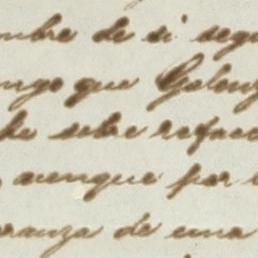 mbre de si segu
engo que Galeng
he sobre refacc
aunque por
ranza de una